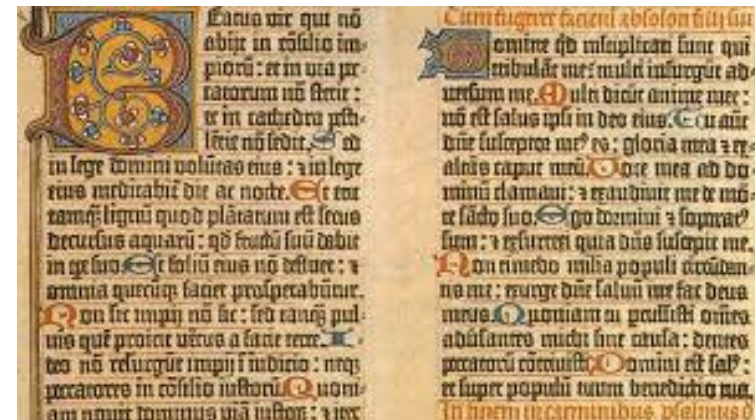 Beatus vir qui nō
abijt in cōsilio im-
piorū : et in via pec-
catorum nō stetit :
et in cathedra pesti-
lētie nō sedit. Sed
in lege domini volūtas eius : ⁊ in lege
eius meditabit die ac nocte. Et erit
tamq̄ lignū quod plātatum est secus
decursus aquarū : qd fructū suū dabit
in tpe suo Et foliū eius nō defluet : ⁊
omnia quecūq; faciet prosperabūtur.
Non sic impij nō sic : sed tamq̄ pul-
uis quē proicit vētus a facie terre. I-
deo nō resurgūt impij ī iudicio : neq;
peccatores in cōsilio iustorū Quoni-
am nouit dominus viā iustorū : ⁊ iter
Cum fugeret faciem absolon filij sui
Domine qd multiplicati sunt qui
tribulāt me : multi insurgūt ad-
uersum me. Multi dicūt anime mee :
nō est salus ipsi in deo eius. Tu autē
dūe susceptor me⁹ es : gloria mea ⁊ ex-
altās caput meū. Voce mea ad do-
minū clamaui : ⁊ exaudiuit me de mō-
te sācto suo. Ego dormiui ⁊ soporat⁹
sum : ⁊ exsurrexi quia dūs suscepit me.
Non timebo milia populi circūdan-
tis me : exurge dūe saluū me fac deus
meus. Quoniam tu percussisti omēs
aduersantes michi sine causa : dentes
peccatorū cōtriuisti Domini est sal⁹ :
et super populū tuum benedictio tua.
In finem in carminibus